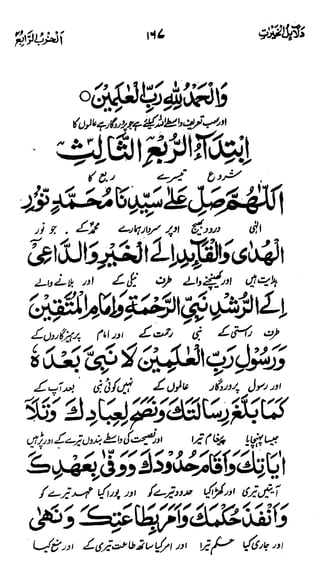 دلائل الخیرات ١٦٧ الحزب الرابع
وَالْحَمْدُ لِلّٰهِ رَبِّ الْعٰلَمِیْنَ ○
اور سب تعریف واسطے اللہ کیلئے ہے جو پروردگار ہے عالموں کا
اِبْتِدَاءُ الرُّبُعِ الثَّالِثِ
شروع تیسرے ربع کا
اَللّٰهُمَّ صَلِّ عَلٰی سَیِّدِنَا مُحَمَّدٍ نُوْرِ
الٰہی درود بھیج اوپر سردار ہمارے محمد کے جو نور
الْهُدٰی وَالْقَآئِدِ اِلَی الْخَیْرِ وَالدَّاعِیْ
ہدایت ہیں اور کھینچنے والے طرف نیکی کے اور بلانے والے
اِلَی الرُّشْدِ نَبِیِّ الرَّحْمَةِ وَاِمَامِ الْمُتَّقِیْنَ
طرف راستی کے نبی رحمت کے اور امام پرہیزگاروں کے
وَرَسُوْلِ رَبِّ الْعٰلَمِیْنَ لَا نَبِیَّ بَعْدَهٗ
اور رسول پروردگار عالموں کے نہیں کوئی نبی بعد آپ کے
كَمَا بَلَّغَ رِسَالَتَكَ وَنَصَحَ لِعِبَادِكَ وَتَلَا
جیسا پہنچایا پیغام تیرا اور نصیحت کی واسطے بندوں تیرے کے اور پڑہیں
اٰیَاتِكَ وَاَقَامَ حُدُوْدَكَ وَوَفٰی بِعَهْدِكَ
آیتیں تیری اور کھڑا کیا حدود تیرے کو اور پورا کیا عہد تیرے کو
وَاَنْفَذَ حُكْمَكَ وَاَمَرَ بِطَاعَتِكَ وَنَهٰی
اور جاری کیا حکم تیرا اور امر کیا ساتھ طاعت تیری کے اور منع کیا